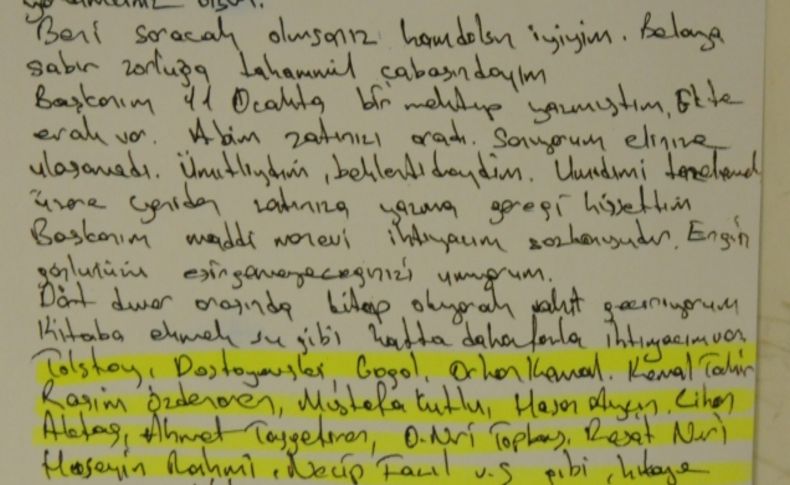 olsun.
Beni soracak olursanız hamdolsun iyiyim. Belaya
sabır zorluğa tahammül çabasındayım
Başkanım 11 Ocakta bir mektup yazmıştım, Ekte
evrak var. Abim zatınızı aradı. Sanıyorum elinize
ulaşamadı. Ümitliydim, beklentideydim. Umudimi tazelemek
üzere yeniden zatınıza yazma gereği hissettim
Başkanım maddi manevi ihtiyacım sözkonusudur. Engin
gönlünüzü esirgemeyeceğinizi umuyorum.
Dört duvar arasında kitap okuyarak vakit geçiriyorum
Kitaba ekmek su gibi hatta daha fazla ihtiyacım var
Tolstoy, Dostoyevski, Gogol, Orhan Kemal. Kemal Tahir
Rasim Özdenören, Mustafa Kutlu, Hasan Aycın, Cihan
Aktaş, Ahmet Taşgetiren, O. Nuri Topbaş, Reşat Nuri
Hüseyin Rahmi, Necip Fazıl v.s gibi, hikaye